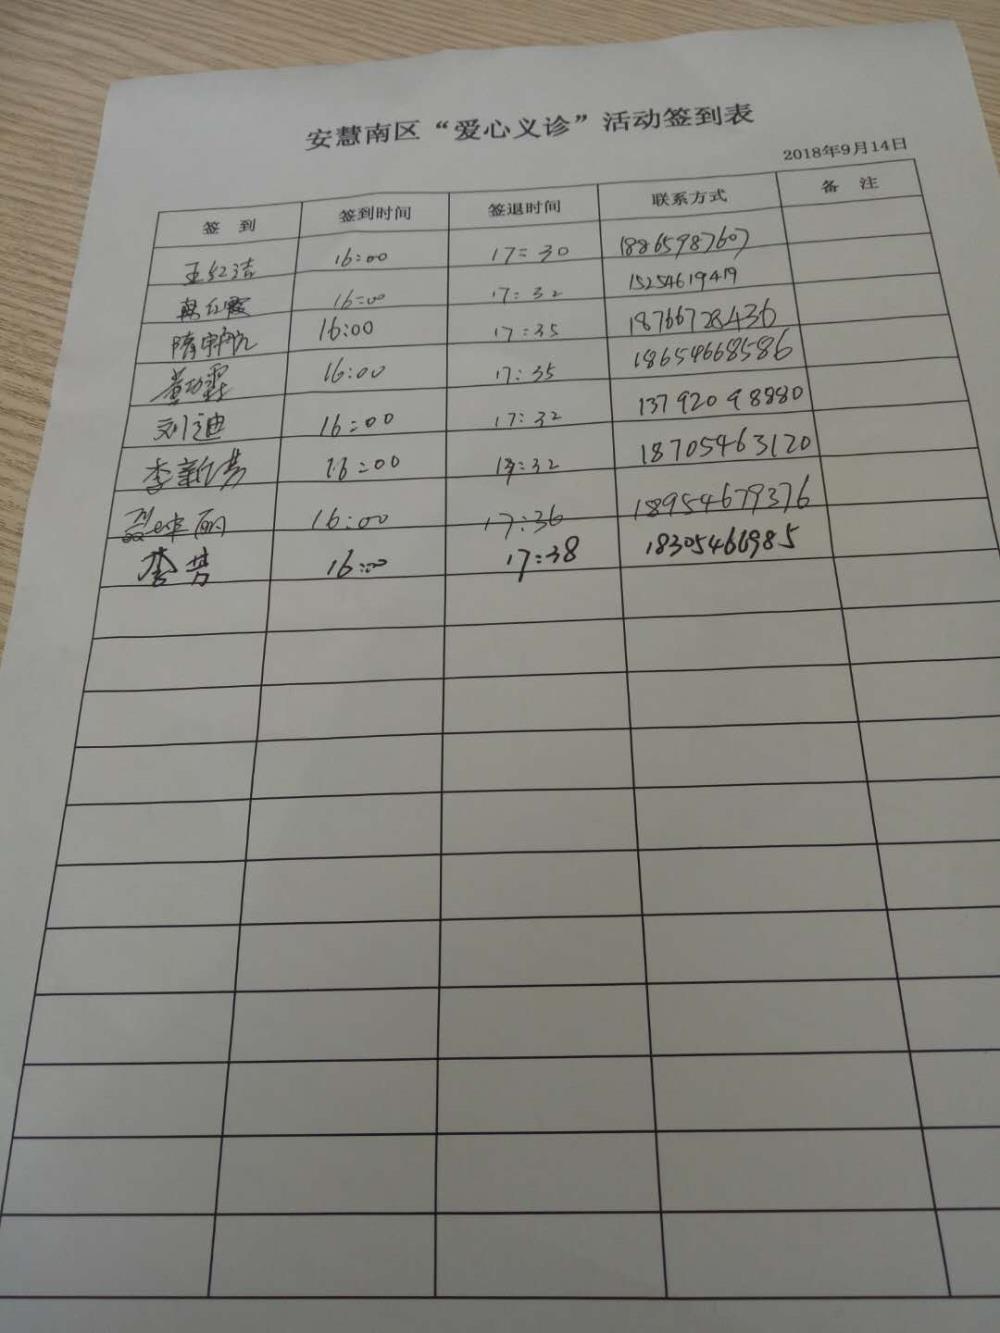 安慧南区“爱心义诊”活动签到表
2018年9月14日
签 到 签到时间 签退时间 联系方式 备 注
王红洁 16:00 17:30 18865987607
韩红霞 16:00 17:32 15254619419
隋宇航 16:00 17:35 18766728436
16:00 17:35 18654668586
刘迪 16:00 17:32 13792098880
李新芳 16:00 17:32 18705463120
16:00 17:36 18954679376
李芳 16:00 17:38 18305466985